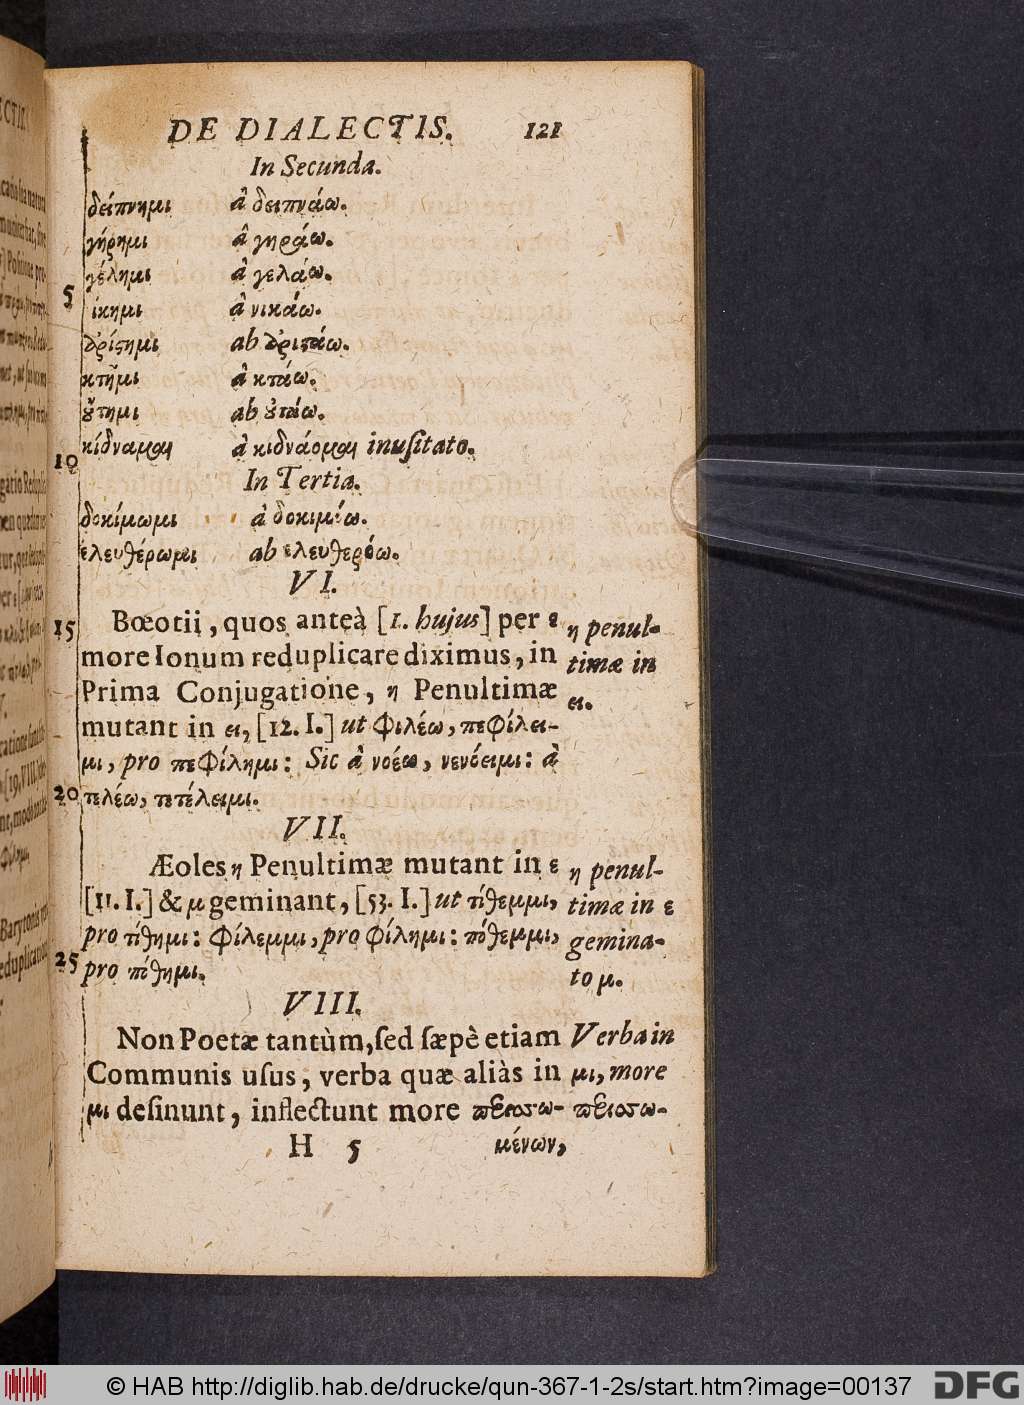 DE DIALECTIS. 121
In Secunda.
δείπνημι ἀ δειπνάω.
γήρημι ἀ γηράω.
γέλημι ἀ γελάω.
5
ίκημι ἀ νικάω.
ἀρίςημι ab ἀριςάω.
κτῆμι ἀ κτάω.
ȣ̓́τημι ab ȣ̓τάω.
κίδναμαι ἀ κιδνάομαι inuſitato.
10
In Tertia.
δοκίμωμι ἀ δοκιμόω.
ἐλευθέρωμι ab ἐλευθερόω.
VI.
15 Bœotii, quos anteà [1. hujus] per ε η penul-
more Ionum reduplicare diximus, in timæ in
Prima Conjugatione, η Penultimæ ει.
mutant in ει, [12. I.] ut Φιλέω, πεΦίλει-
μι, pro πεΦίλημι: Sic ἀ νοέω, νενόειμι: ἀ
20 τελέω, τετέλειμι.
VII.
Æoles η Penultimæ mutant in ε η penul-
[11. I.] & μ geminant, [53. I.] ut τίθεμμι, timæ in ε
pro τίθημι: Φίλεμμι, pro Φίλημι: πόθεμμι, gemina-
25 pro πόθημι. to μ.
VIII.
Non Poetæ tantùm, ſed ſæpè etiam Verba in
Communis uſus, verba quæ aliàs in μι, more
μι deſinunt, inflectunt more περισπω- περισπω-
H 5 μένων,
© HAB http://diglib.hab.de/drucke/qun-367-1-2s/start.htm?image=00137 DFG